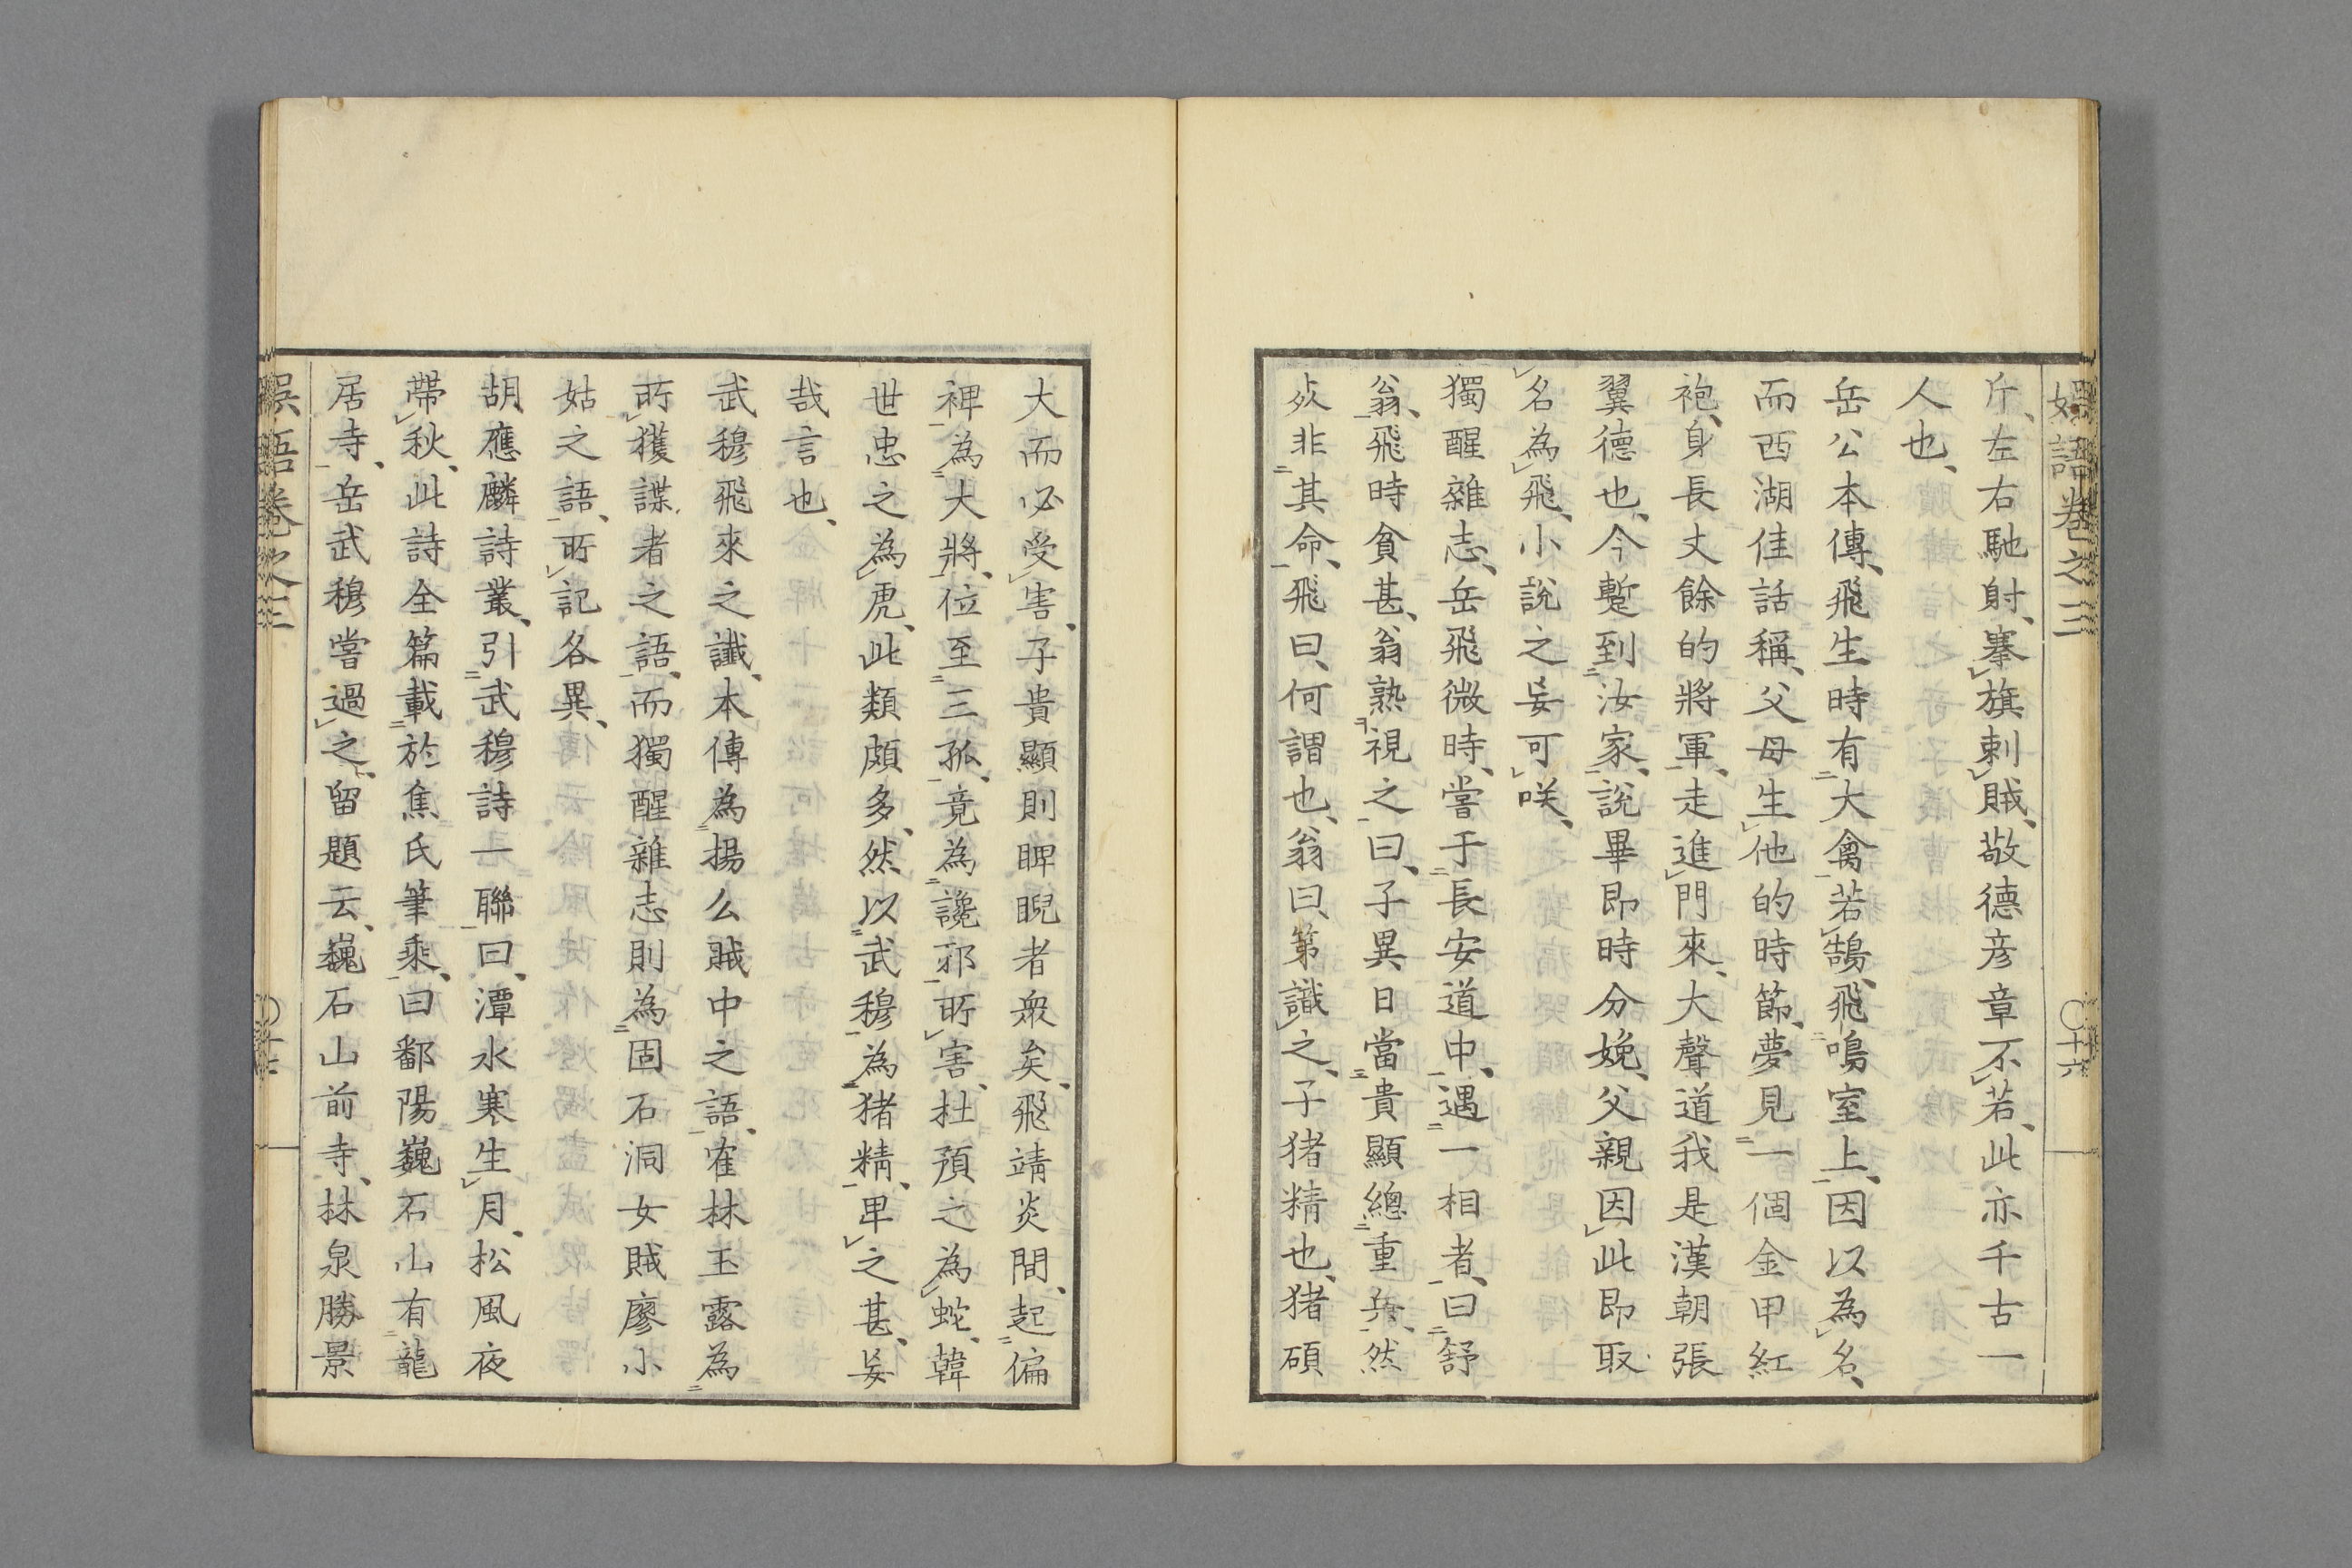 娯語卷之三　〇十六
斤、左右馳射、搴旗刺賊、敬德彦章不若、此亦千古一
人也、
岳公本傳、飛生時有大禽若鵠、飛鳴室上、因以為名、
而西湖佳話稱、父母生他的時節、夢見一個金甲紅
袍、身長丈餘的將軍、走進門來、大聲道我是漢朝張
翼德也、今蹔到汝家、說畢即時分娩、父親因此即取
名為飛、小說之妄可咲、
獨醒雜志、岳飛微時、嘗于長安道中、遇一相者、曰舒
翁、飛時貧甚、翁熟視之曰、子異日當貴顯總重兵、然
死非其命、飛曰、何謂也、翁曰、第識之、子猪精也、猪碩
大而必受害、子貴顯則睥睨者衆矣、飛靖炎間、起偏
裨為大將、位至三孤、竟為讒邪所害、杜預之為蛇、韓
世忠之為虎、此類頗多、然以武穆為猪精、卑之甚、妄
哉言也、
武穆飛來之讖、本傳為揚么賊中之語、寉林玉露為
所獲諜者之語、而獨醒雜志則為固石洞女賊廖小
姑之語、所記各異、
胡應麟詩叢、引武穆詩一聯曰、潭水寒生月、松風夜
帶秋、此詩全篇載於焦氏筆乘、曰鄱陽巍石山有龍
居寺、岳武穆嘗過之、留題云、巍石山前寺、林泉勝景
娯語卷之三　〇十七